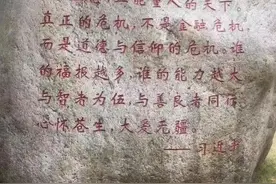 能量人的天下。
真正的危机，不是金融危机，
而是道德与信仰的危机。谁
的福报越多，谁的能力越大
与智者为伍，与善良者同行
心怀苍生，大爱无疆。
——习近平